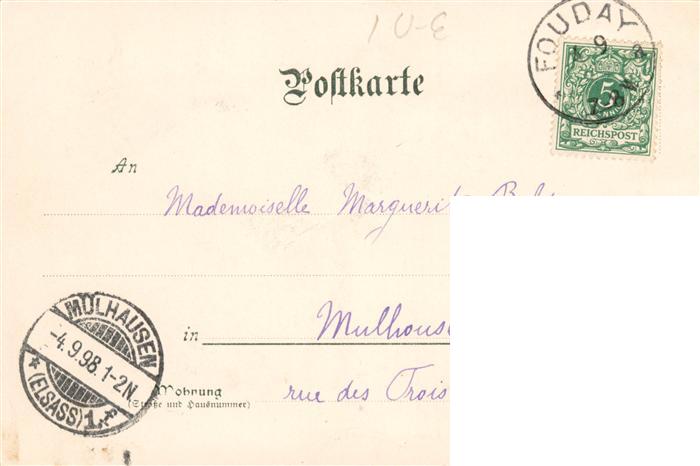 1 0-E
Postkarte
FOUDAY
9
7-8N
5
PFENNIG
REICHSPOST
An
Mademoiselle Marguerite
in Mulhouse
Wohnung
(Straße und Hausnummer)
rue des Trois
MÜLHAUSEN
-4.9.98.1-2N
* (ELSASS) 1.f